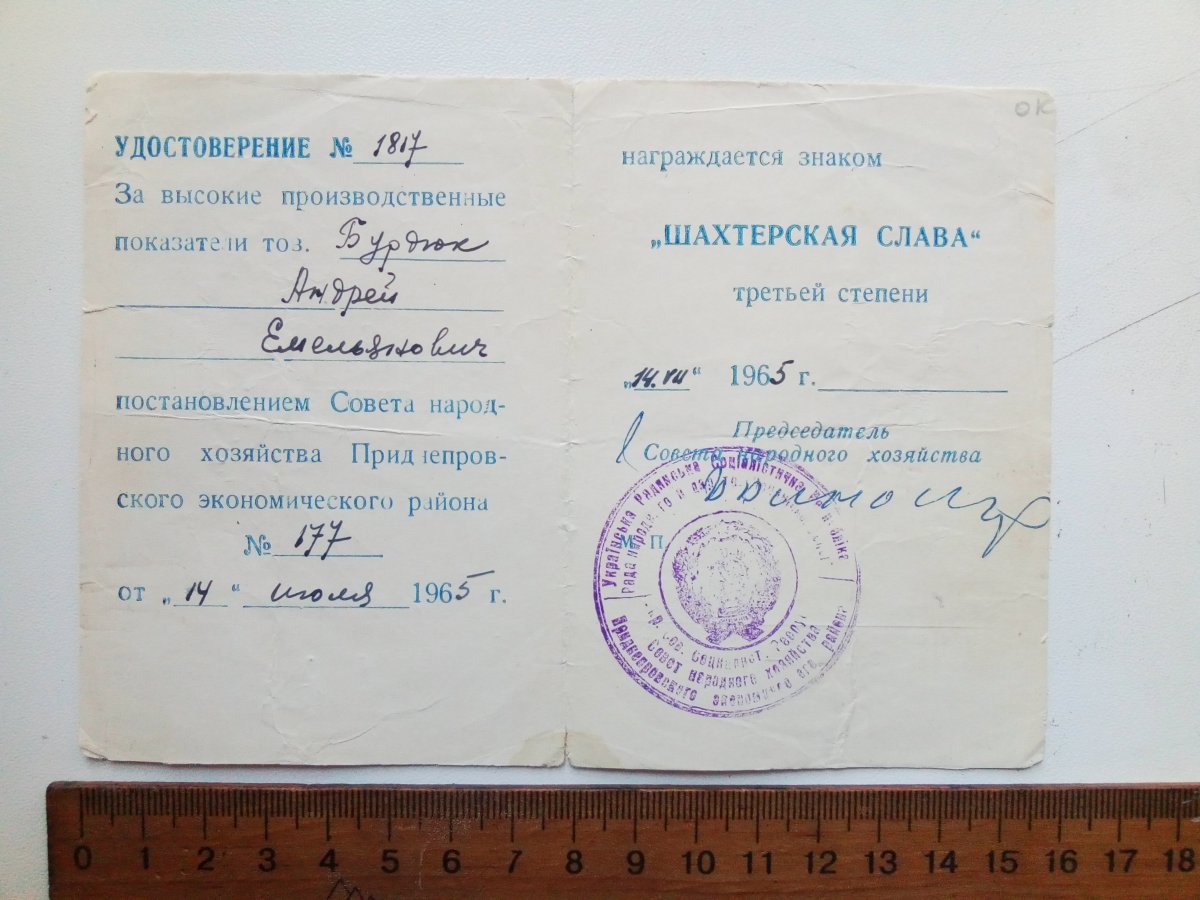 УДОСТОВЕРЕНИЕ № 1817
За высокие производственные
показатели тов. Бурдюк
Андрей
Емельянович
постановлением Совета народ-
ного хозяйства Приднепров-
ского экономического района
№ 177
от „14“ июля 1965 г.
ОК
награждается знаком
„ШАХТЕРСКАЯ СЛАВА“
третьей степени
„14.VII“ 1965 г.
Председатель
Совета народного хозяйства
М П
Українська Радянська Соціалістична
Рада народного
Совет народного хозяйства
Приднепровского района
0 1 2 3 4 5 6 7 8 9 10 11 12 13 14 15 16 17 18